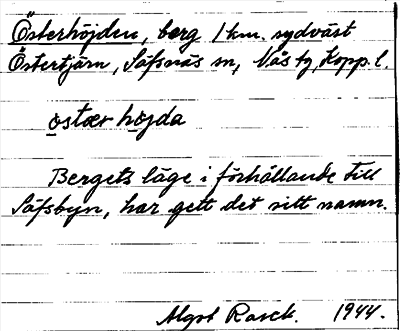 Österhöjden, berg 1 km. sydväst
Östertjärn, Säfsnäs sn, Nås tg, Kopp. l.
ostær höjda
Bergets läge i förhållande till
Säfsbyn, har gett det sitt namn.
Algot Rasck. 1944.